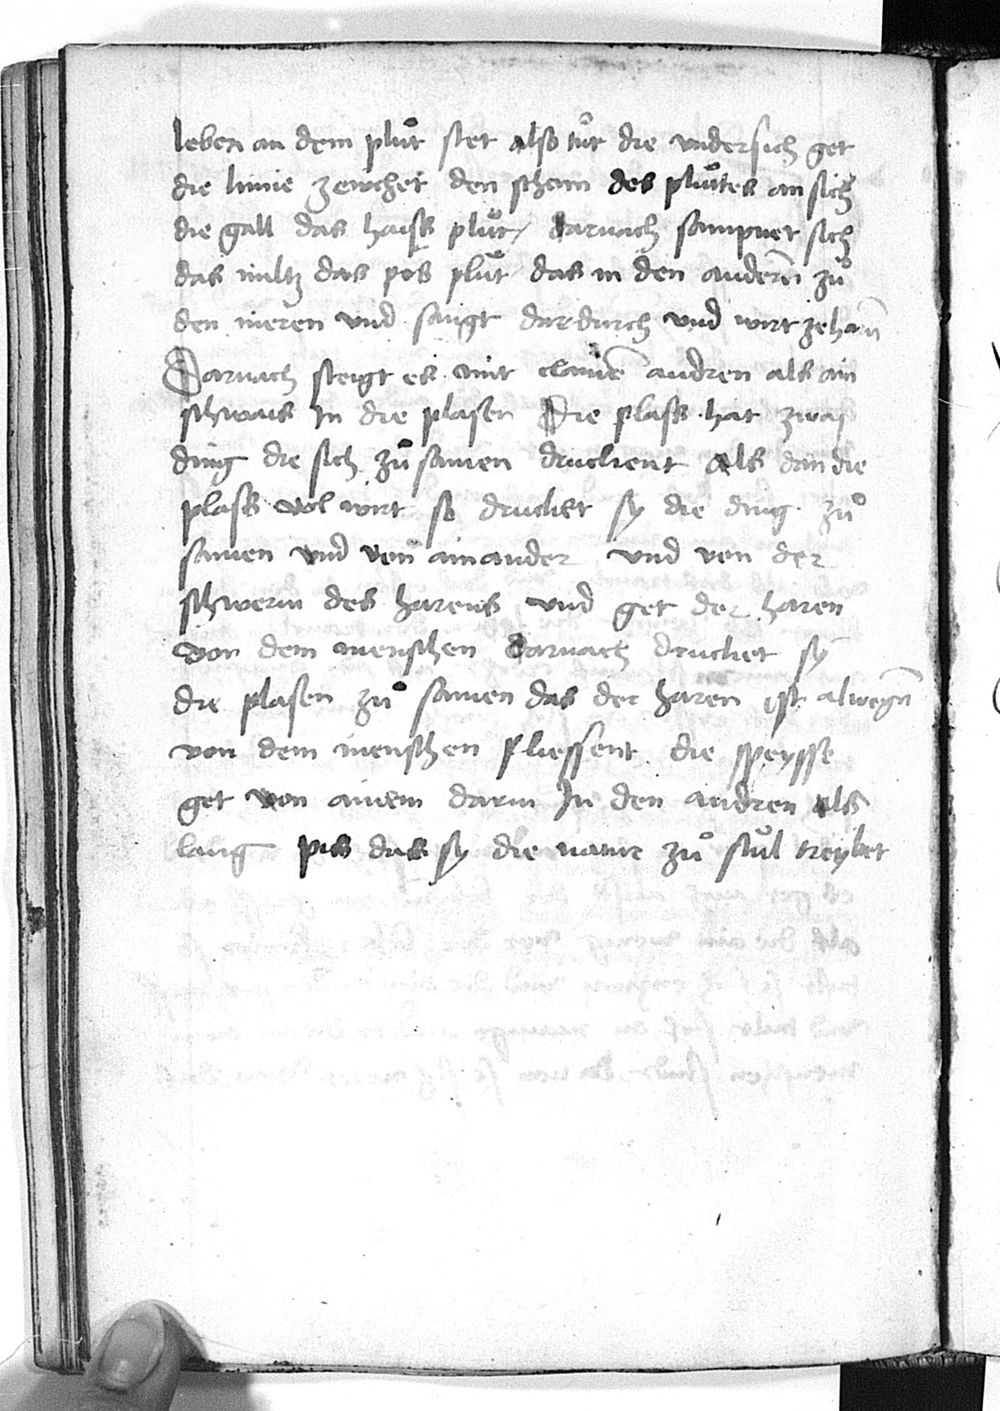 leben an dem plůt stet also tůt die vndersich get
die lunie zeuchet den scham des plůttes an sich
die gall das haiss plůt / darnach sampnet sich
das miltz das pos plůt das in den anderñ zů
den nieren vnd saugt dardurch vnd wirt zeharñ
Darnach steigt es mit clainē andren als ain
schwais In die plasen Die plass hat zwai
ding die sich zů samen druckent als dan die
plass vol wirt so drucket sy die ding zů
samen vnd von ainander vnd von der
schwerin des harens vnd get der haren
von dem menschen darnach drucket sy
die plasen zů samen das der haren ist alwegñ
von dem menschen fliessent die speysse
get von ainem darm In den andren als
lang pis das sy die natur zů stůl treybet